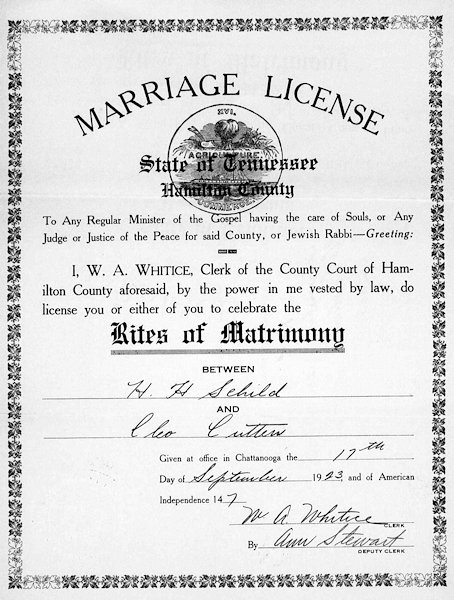 MARRIAGE LICENSE
XVI.
AGRICULTURE
COMMERCE
State of Tennessee
Hamilton County
To Any Regular Minister of the Gospel having the care of Souls, or Any
Judge or Justice of the Peace for said County, or Jewish Rabbi—Greeting:
I, W. A. WHITICE, Clerk of the County Court of Ham-
ilton County aforesaid, by the power in me vested by law, do
license you or either of you to celebrate the
Rites of Matrimony
BETWEEN
H. H Schild
AND
Cleo Cutters
Given at office in Chattanooga the 17th
Day of September 1923 and of American
Independence 147
W A Whitice
CLERK
By Ann Stewart
DEPUTY CLERK